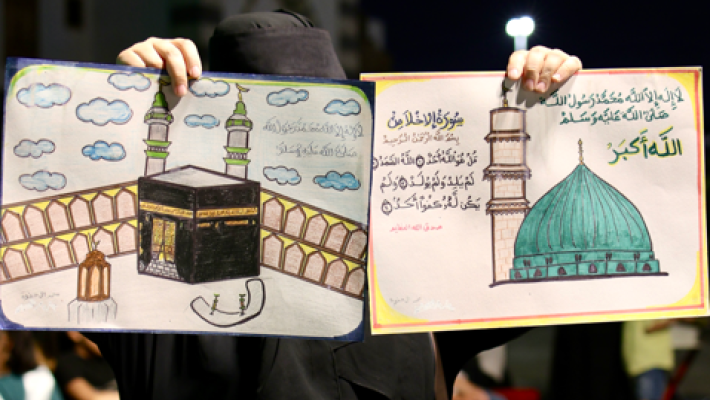 لا إله إلا الله محمد رسول الله
صلى الله عليه وسلم
سورة الإخلاص
بسم الله الرحمن الرحيم
قل هو الله أحد الله الصمد
لم يلد ولم يولد ولم
يكن له كفوا أحد
صدق الله العظيم
لا إله إلا الله محمد رسول الله
صلى الله عليه وسلم
الله أكبر